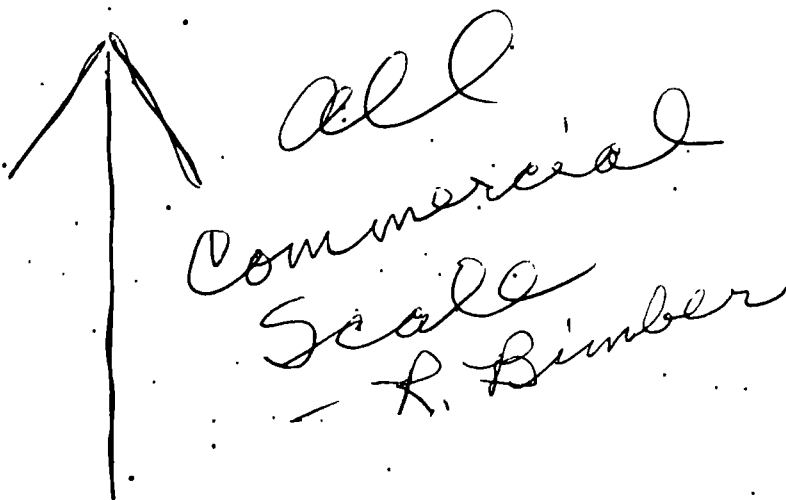 all
Commercial
Scale
- R. Bimber